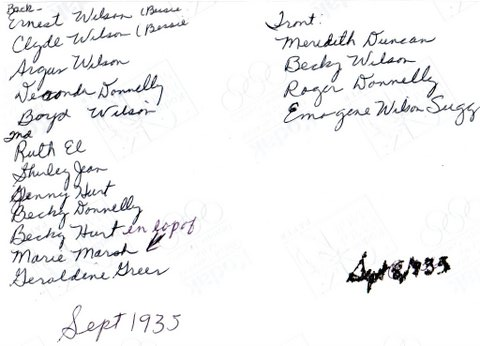 Back-
Ernest Wilson (Bessie
Clyde Wilson (Bessie
Argus Wilson
Donnelly
Boyd Wilson
2nd
Ruth El
Shirley Jean
Genny Hurt
Becky Donnelly
Becky Hurt in top of
Marie Marsh
Geraldine Greer
Sept 1935
Front:
Meredith Duncan
Becky Wilson
Roger Donnelly
Emogene Wilson Sugg
Sept 8, 1935